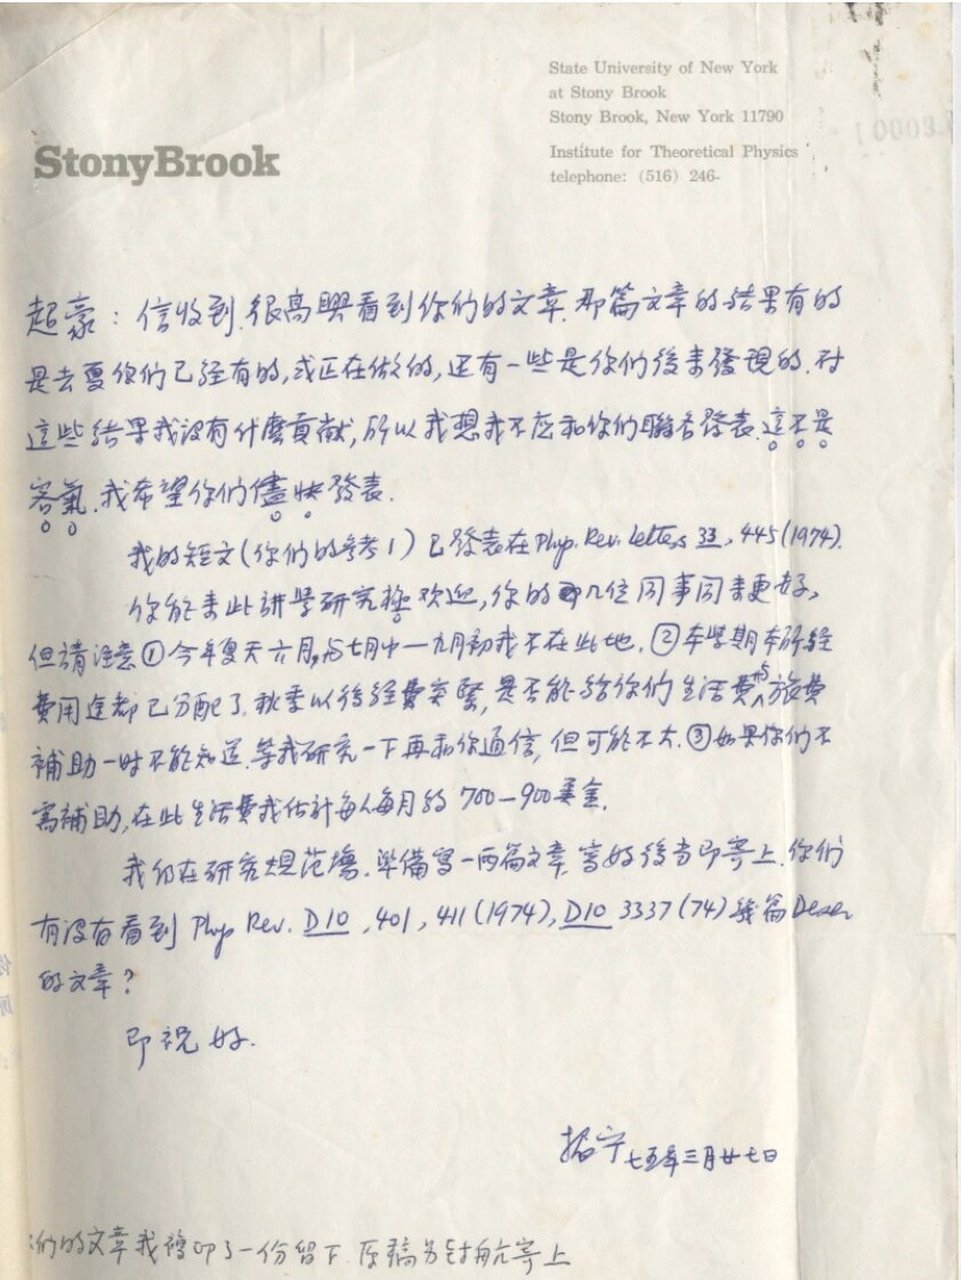 State University of New York
at Stony Brook
Stony Brook, New York 11790
StonyBrook
Institute for Theoretical Physics
telephone: (516) 246-
超豪：信收到.很高興看到你们的文章.那篇文章的结果有的
是去夏你们已经有的,或正在做的,还有一些是你们後来發現的.对
這些结果我没有什麼貢献,所以我想我不应和你们聯名發表.這不是
客氣.我希望你们儘快發表.
我的短文(你们的参考1)已發表在Phys. Rev. Letters 33, 445(1974).
你能来此讲学研究極欢迎,你的几位同事同来更好,
但請注意①今年夏天六月,与七月中一九月初我不在此地.②本学期本所经
費用途都已分配了.秋季以後经費突緊,是否能给你们生活費与旅費
補助一时不能知道.等我研究一下再和你通信,但可能不大.③如果你们不
需補助,在此生活費我估計每人每月約 700-900美金.
我仍在研究规范場.準備寫一两篇文章.寫好後当即寄上.你们
有没有看到 Phys Rev. D10, 401, 411(1974), D10 3337(74)幾篇Deser
的文章？
即祝 好.
振宁 七五年三月廿七日
们的文章我複印了一份留下.原稿另封航寄上